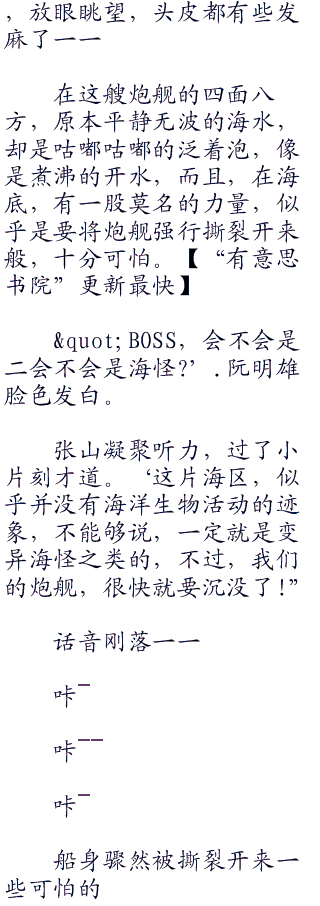 ，放眼眺望，头皮都有些发
麻了一一
在这艘炮舰的四面八
方，原本平静无波的海水，
却是咕嘟咕嘟的泛着泡，像
是煮沸的开水，而且，在海
底，有一股莫名的力量，似
乎是要将炮舰强行撕裂开来
般，十分可怕。【“有意思
书院”更新最快】
&quot;BOSS，会不会是
二会不会是海怪?’.阮明雄
脸色发白。
张山凝聚听力，过了小
片刻才道。‘这片海区，似
乎并没有海洋生物活动的迹
象，不能够说，一定就是变
异海怪之类的，不过，我们
的炮舰，很快就要沉没了!”
话音刚落一一
咔¯
咔¯¯
咔¯
船身骤然被撕裂开来一
些可怕的